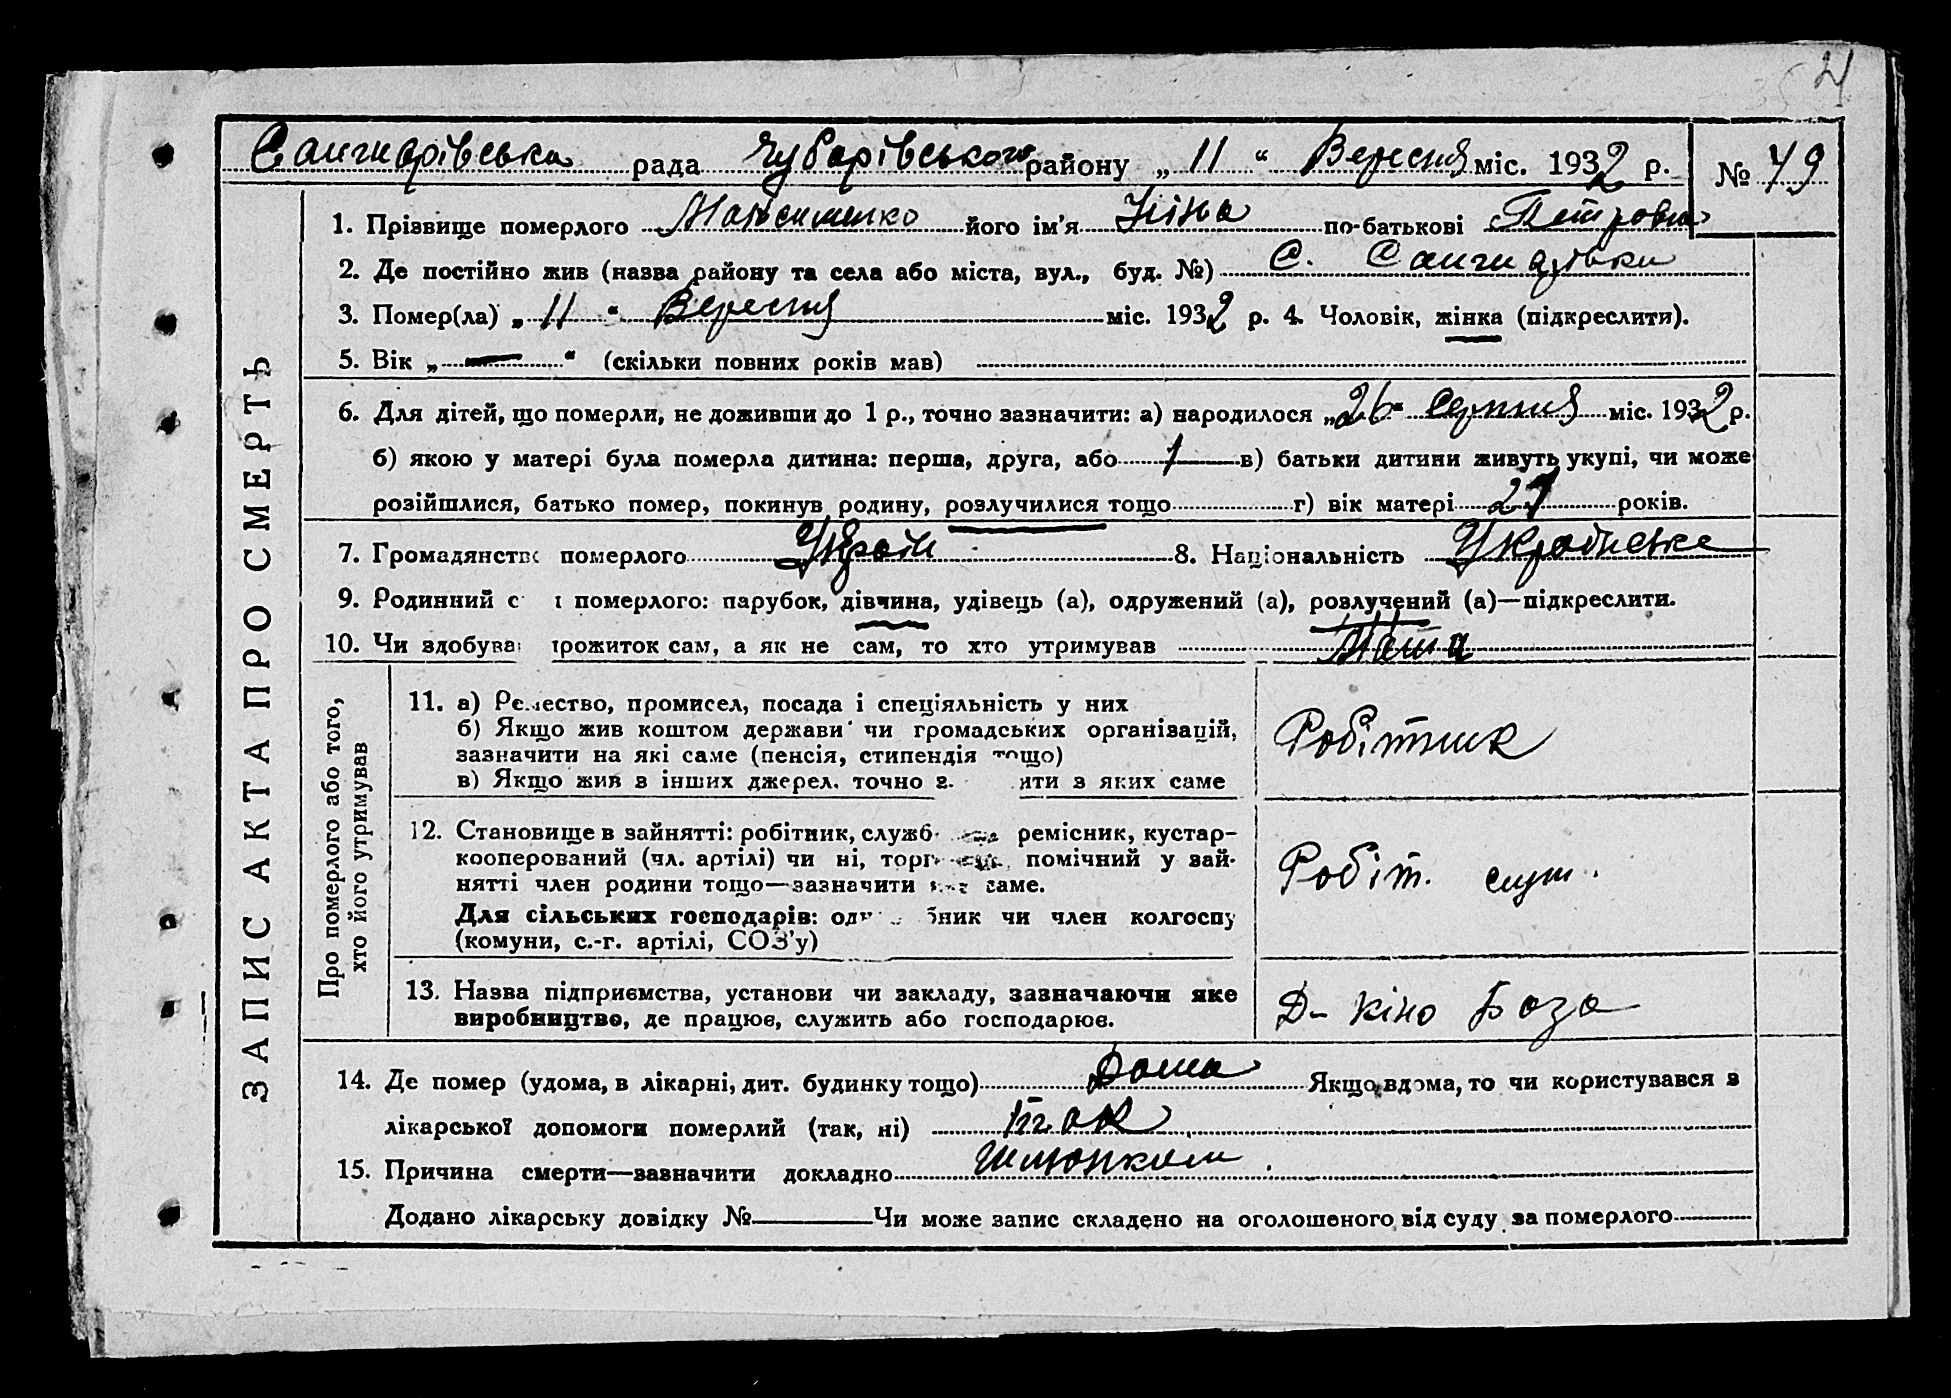 21
Санжарівська рада Чубарівського району „ 11 “ Вересня міс. 1932 р. № 49
ЗАПИС АКТА ПРО СМЕРТЬ
1. Прізвище померлого Максименко його ім'я Ніна по-батькові Петровна
2. Де постійно жив (назва району та села або міста, вул., буд. №) С. Санжарівка
3. Помер(ла) „ 11 “ Вересня міс. 1932 р. 4. Чоловік, жінка (підкреслити).
5. Вік „ — “ (скільки повних років мав)
6. Для дітей, що померли, не доживши до 1 р., точно зазначити: а) народилося „26“ Серпня міс. 1932 р.
б) якою у матері була померла дитина: перша, друга, або 1 в) батьки дитини живуть укупі, чи може
розійшлися, батько помер, покинув родину, розлучилися тощо г) вік матері 27 років.
7. Громадянство померлого Україн 8. Національність
9. Родинний с і померлого: парубок, дівчина, удівець (а), одружений (а), розлучений (а)—підкреслити.
10. Чи здобува прожиток сам, а як не сам, то хто утримував
Про померлого або того,
хто його утримував
11. а) Ремество, промисел, посада і спеціяльність у них
б) Якщо жив коштом держави чи громадських організацій,
зазначити на які саме (пенсія, стипендія тощо)
в) Якщо жив з інших джерел, точно з ити з яких саме
Робітник
12. Становище в зайнятті: робітник, служб ремісник, кустар-
кооперований (чл. артілі) чи ні, торг помічний у зай-
нятті член родини тощо—зазначити саме.
Для сільських господарів: од бник чи член колгоспу
(комуни, с.-г. артілі, СОЗ'у)
Робіт. служ.
13. Назва підприємства, установи чи закладу, зазначаючи яке
виробництво, де працює, служить або господарює.
Д- кіно База
14. Де помер (удома, в лікарні, дит. будинку тощо) Дома Якщо вдома, то чи користувався з
лікарської допомоги померлий (так, ні) так
15. Причина смерти—зазначити докладно
Додано лікарську довідку № Чи може запис складено на оголошеного від суду за померлого